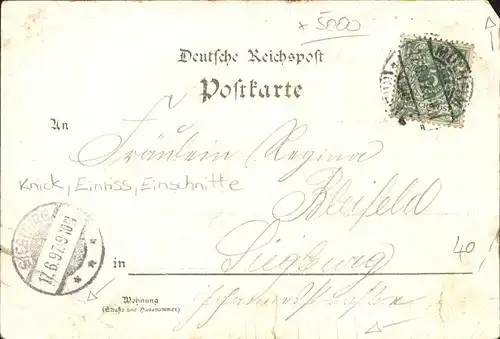 + 5000
Deutsche Reichspost
Postkarte
An
Fräulein Regina
Knick, Einriss, Einschnitte
Bleifeld
SIEGBURG
17.6.97.9-10N
40,
in Siegburg
Wohnung
(Straße und Hausnummer)
Johannesstraße